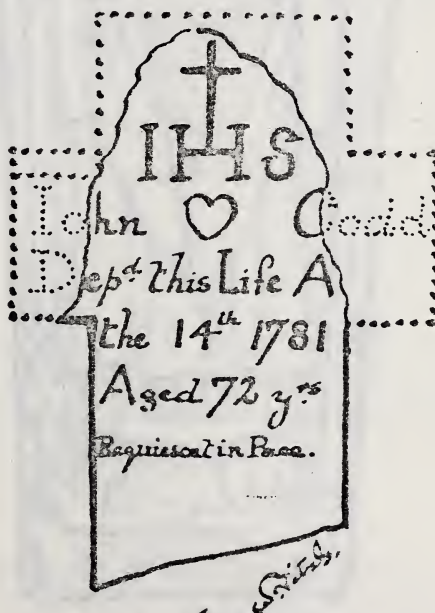 IHS
John Codd
Dep.d this Life A
the 14th 1781
Aged 72 yrs
Requiescat in Pace.